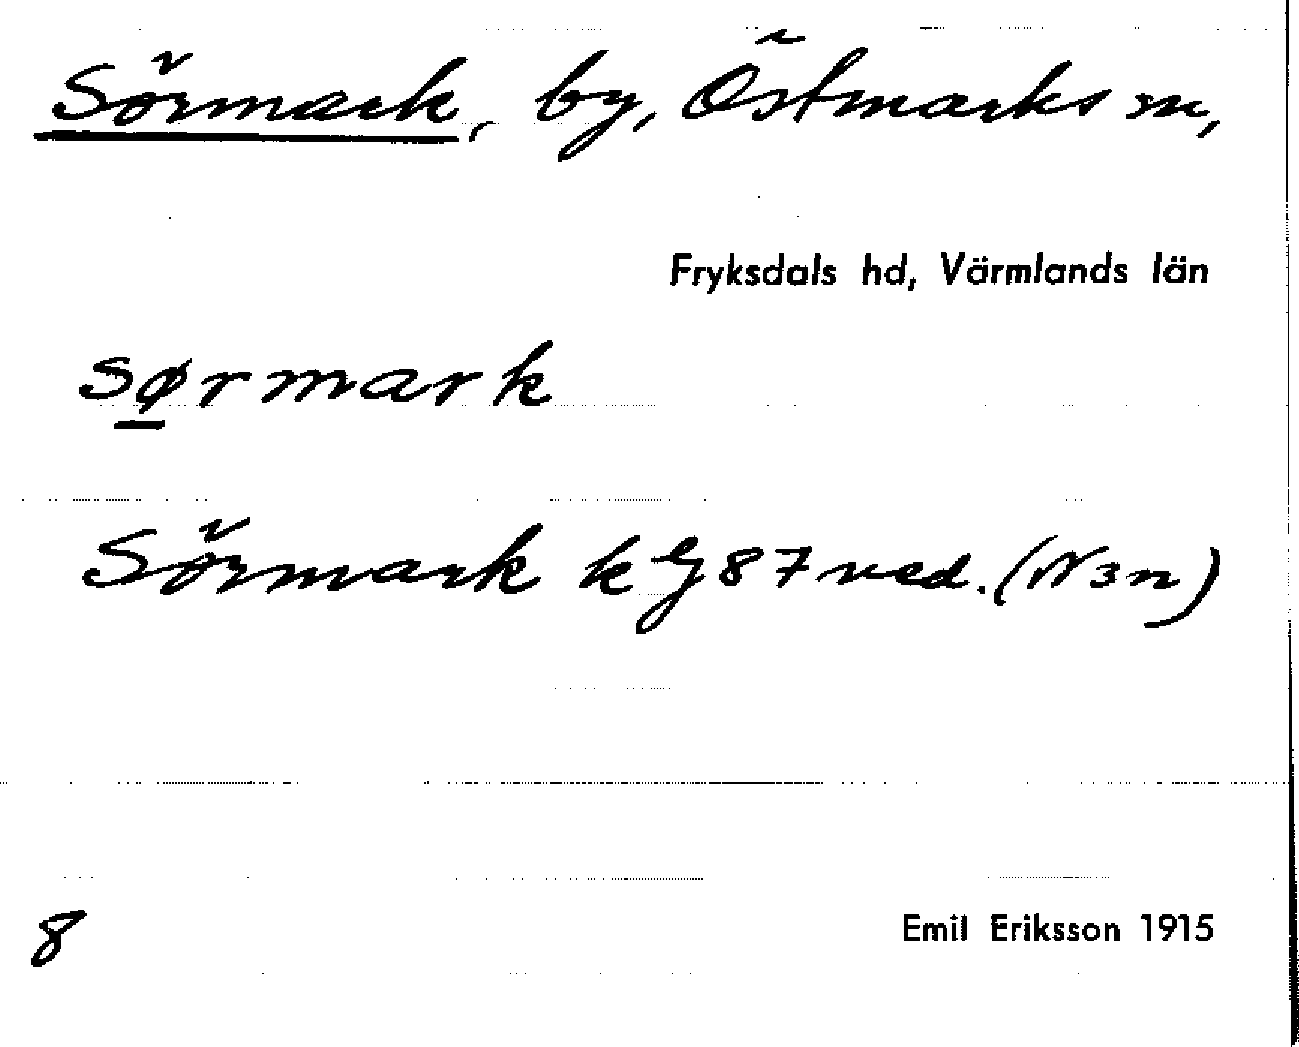 Sörmark, by, Östmarks sn,
Fryksdals hd, Värmlands län
sørmark
Sörmark k G 87 ned. (N3n)
8
Emil Eriksson 1915